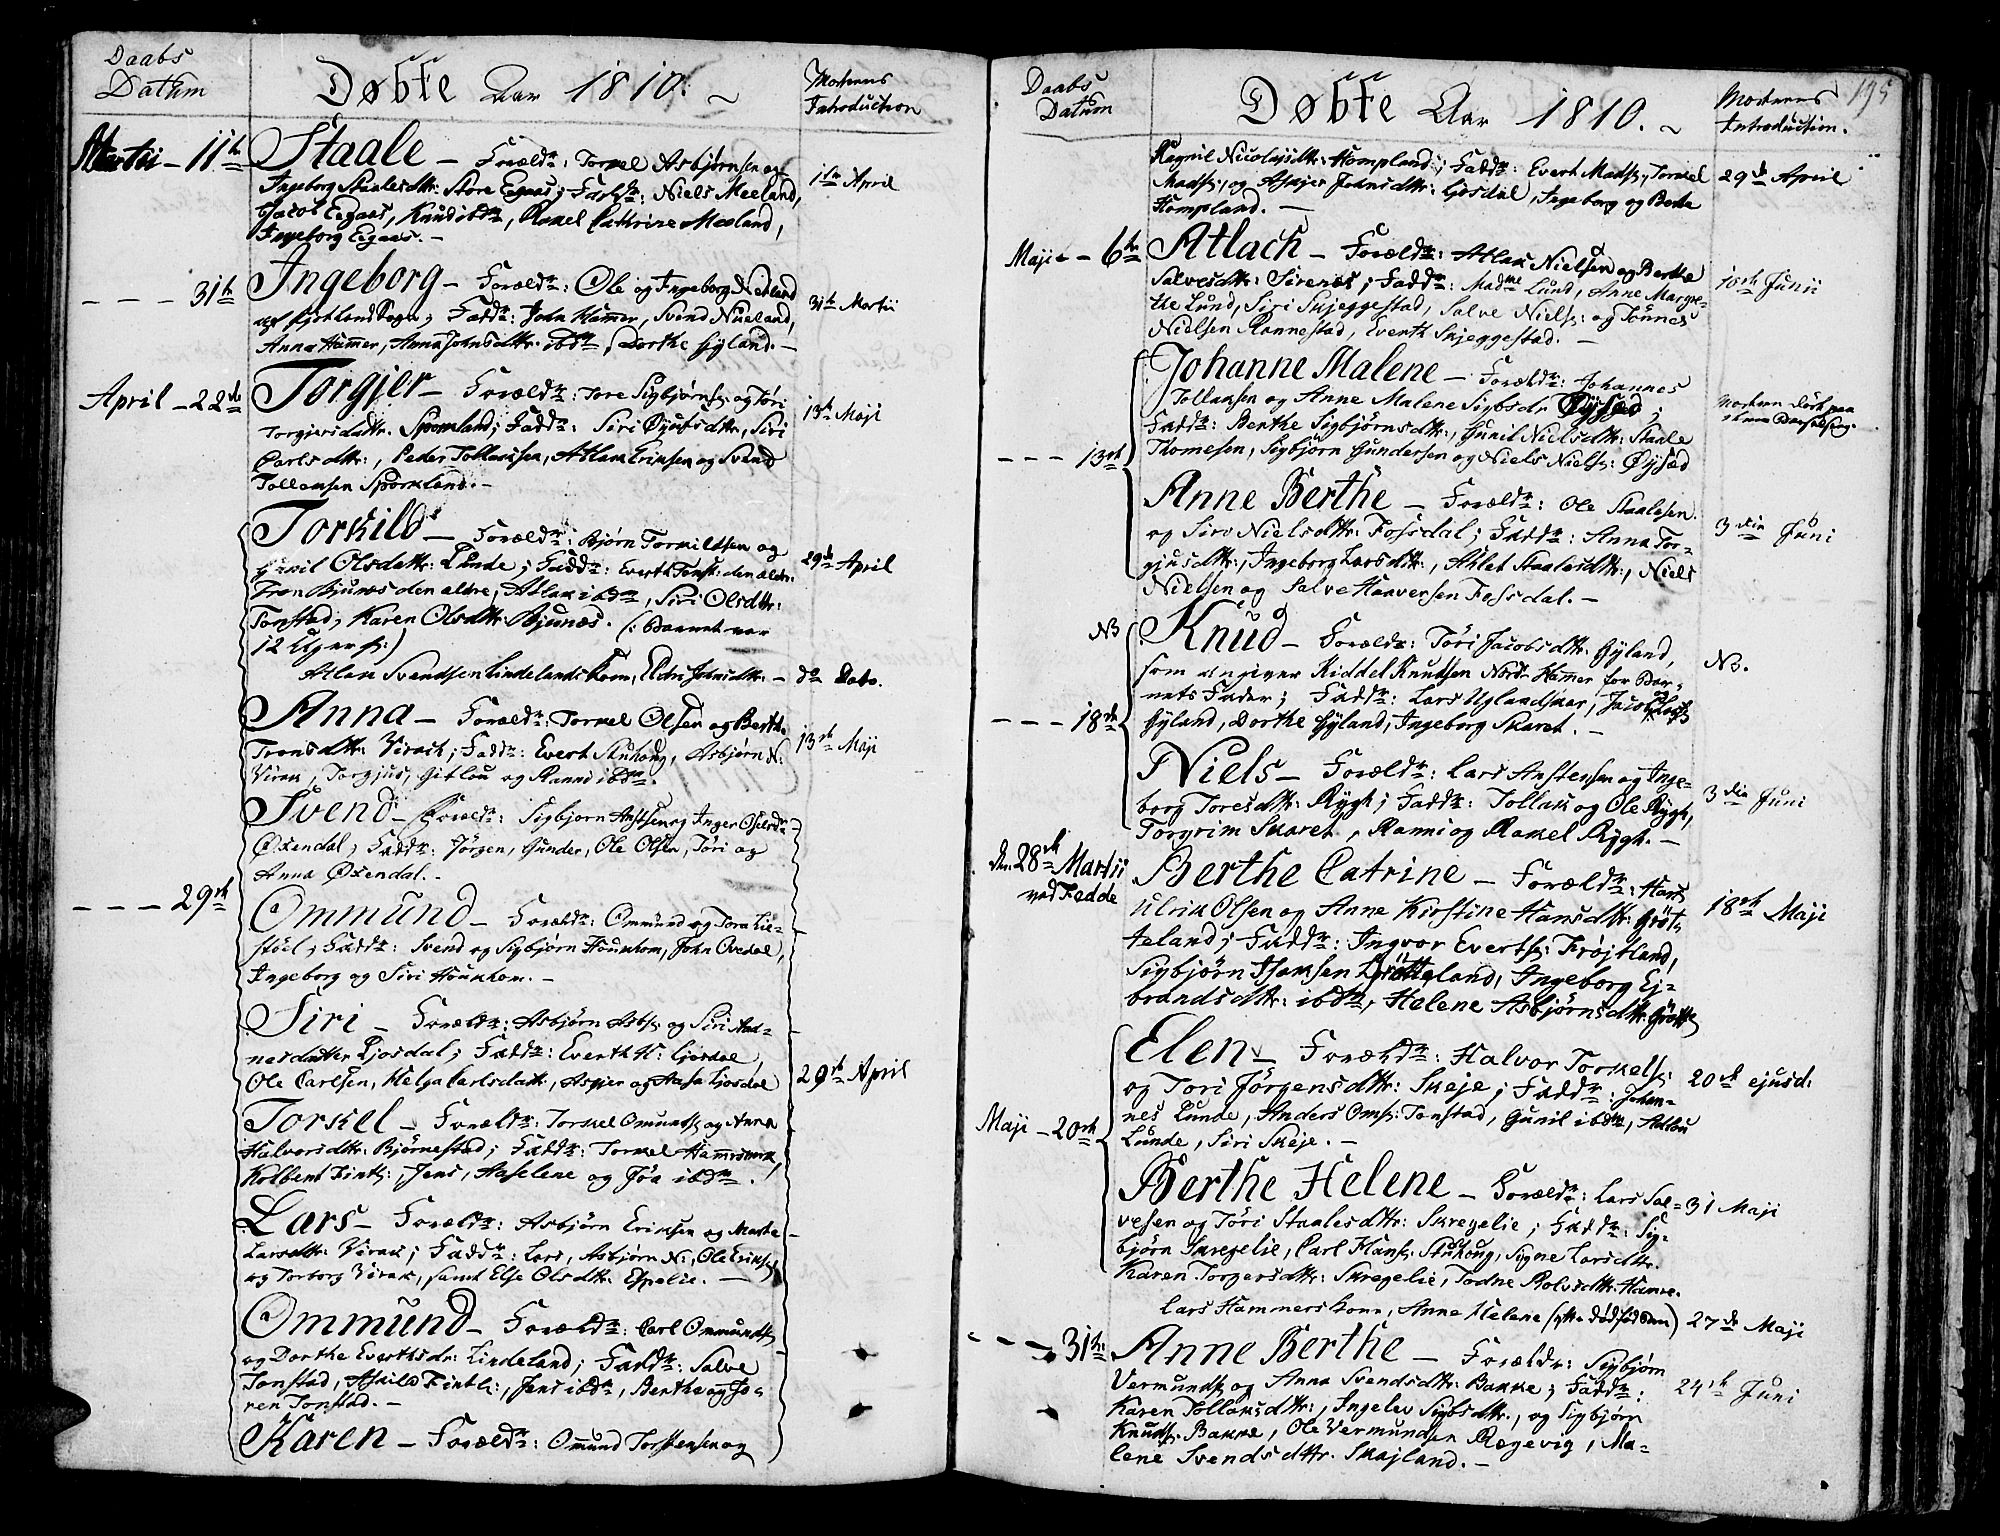 Daabs
Dathm
Døbte Aar 1810. ~
Moderens
Introduction
Martii - 11te
Staale - Forældr: Torkel Asbjørnsen og
Ingeborg Staalesdttr: Store Eegaas; Faddr: Niels Meeland,
Jacob Eegaas, Knud ibdm, Rakel Cathrine Meeland,
Ingeborg Eegaas. -
1ste April
- - - 31te
Ingeborg - Forældr: Ole og Ingeborg Netland
Fjotland Sogn; Faddr: John Hamer, Svend Nueland,
Anna Hamer, Anna Johnsdttr: ibdm, Dorthe Gyland. -
31te Martii
April - 22de
Torgjer - Forældr: Tore Sigbjørns: og Tøri
Torgjersdattr. Sporkland; Faddr: Siri Øjufsdttr, Siri
Carlsdttr:, Peder Tollaksen, Atlak Eriksen og Svend
Tollaksen Sporkland. -
13de Maji
Torkild - Forældr: Bjørn Torkildsen og
Gunil Olsdattr: Lunde; Faddr: Everth Tonst: den ældr:
Tron Bjunes den ældre, Atlak ibdm, Siri Olsdttr:
Tonstad, Karen Olsdttr: Bjunes. (: Barnet var
12 Uger g:)
29de April
Atlak Svendsen Lindelands Kone, Eldri Johnsdttr: -
do Dato.
Anna - Forældr: Torkel Olsen og Berthe
Tronsdttr: Virak; Faddr: Evert Stuhoug, Asbjørn N:
Virak, Torgjus, Gitlou og Ranni ibdm.
13de Maji
Svend - Forældr: Sigbjorn Anstsen og Inger Oselsdr
Øxendal; Faddr: Jørgen, Gunder, Ole Olsen, Tøri og
Anna Øxendal. -
- - - 29de
Ommund - Forældr: Ommund og Tora Lie-
støel; Faddr: Svend og Sigbjørn Houkhom, John Ovedal,
Ingeborg og Siri Houkhom. -
Siri - Forældr: Asbjørn Asbs: og Siri Aad-
nesdatter Ljosdal; Faddr: Everth H: Ljosdal,
Ole Carlsen, Helga Carlsdattr, Askjer og Aasa Ljosdal
29de April
Torkel - Forældr: Torkel Omunds: og Anna
Halvorsdttr: Bjørnestad; Faddr: Torkel Hamersmrk,
Kolbent Fintl:, Jens, Aaselene og Jøa ibdm.
Lars - Forældr: Asbjørn Eriksen og Marthe
Larsdttr: Virak; Faddr: Lars, Asbjørn N:, Ole Eriks:
og Torborg Virak, samt Else Olsdttr: Espelie. -
Ommund - Forældr: Carl Ommunds:
og Dorthe Everthsdr: Lindeland; Faddr: Salve
Tonstad, Askild Fintl:, Jens ibdm, Berthe og Jo-
ren Tonstad. -
Karen - Forældr: Omund Torstensen og
Daabs
Datum
Døbte Aar 1810. ~
Moderens
Introduction.
195
Ragnil Nicolajsdttr: Hompland; Faddr: Evert Mads:, Torkel
Mads:, og Askjer Johnsdttr: Ljosdal, Ingeborg og Berte
Hompland. -
29de April
Maji - 6te
Atlach - Forældr: Atlak Nielsen og Berthe
Salvesdttr: Sirenæs; Faddr: Madme Lund, Anne Margre-
the Lund, Siri Skjeggestad, Salve Niels: og Tønnes
Nielsen Rannestad, Everth Skjeggestad. -
10de Junii
Johanne Malene - Forældr: Johannes
Tollaksen og Anne Malene Sigbsdr Øysæd;
Faddr: Berthe Sigbjørnsdttr:, Gunil Nielsdttr: Staale
Thomesen, Sigbjørn Gundersen og Niels Niels: Øysæd
Moderen døde paa
- - - 13de
Anne Berthe - Forældr: Ole Staalesen
og Siri Nielsdttr: Fossdal; Faddr: Anna Tor-
gjusdttr:, Ingeborg Larsdttr:, Atlet Staalesdttr:, Niels
Nielsen og Salve Haaversen Fossdal. -
3die Juni
NB
Knud - Forældr: Tøri Jacobsdttr: Gyland,
som angiver Riddel Knudsen Nordr Hamer for Bar-
nets Fader; Faddr: Lars Uglandskar, Jacob og Lars
Gyland, Dorthe Gyland, Ingeborg Skaret. -
No.
- - - 18de
Niels - Forældr: Lars Anstensen og Inge-
borg Toresdttr: Rygh; Faddr: Tollak og Ole Rygh,
Torgrim Skaret, Ranni og Rakel Rygh. -
3die Juni
dn. 28de Martii
ved Fedde
Berthe Catrine - Forældr: Hans
Ulrik Olsen og Anne Kirstine Hansdttr: Grøt-
teland; Faddr: Ingvor Everts: Frøjtland,
Sigbjørn Isaksen Grøtteland, Ingeborg Ej-
brandsdttr: ibdm, Helene Asbjørnsdttr: Grøttel
18de Maji
Elen - Forældr: Halvor Torkels:
og Tori Jørgensdttr: Skeje; Faddr: Johan-
nes Lunde, Anders Oms: Tonstad, Gunil ibdm, Atlou
Lunde, Siri Skeje. -
20de ejusd:
Maji - 20de
Berthe Helene - Forældr: Lars Sal-
vesen og Tøri Staalesdttr: Skregelie; Faddr: Sig-
bjørn Skregelie, Carl Hans: Stuhoug, Signe Larsdttr:
Karen Torgersdttr: Skregelie, Todne Rolvsdttr: Hamre.
31 Maji
Lars Hammers kone, Anne Helene (ægte dødfød Barn)
27de Maji
- - - 31te
Anne Berthe - Forældr: Sigbjørn
Vermunds: og Anna Svendsdttr: Bakke; Faddr:
Karen Tollaksdttr:, Ingelev Sigbsdttr:, og Sigbjørn
Knuds: Bakke, Ole Vermundsen Rægevig, Ma-
lene Svendsdttr. Skajland. -
24de Juni